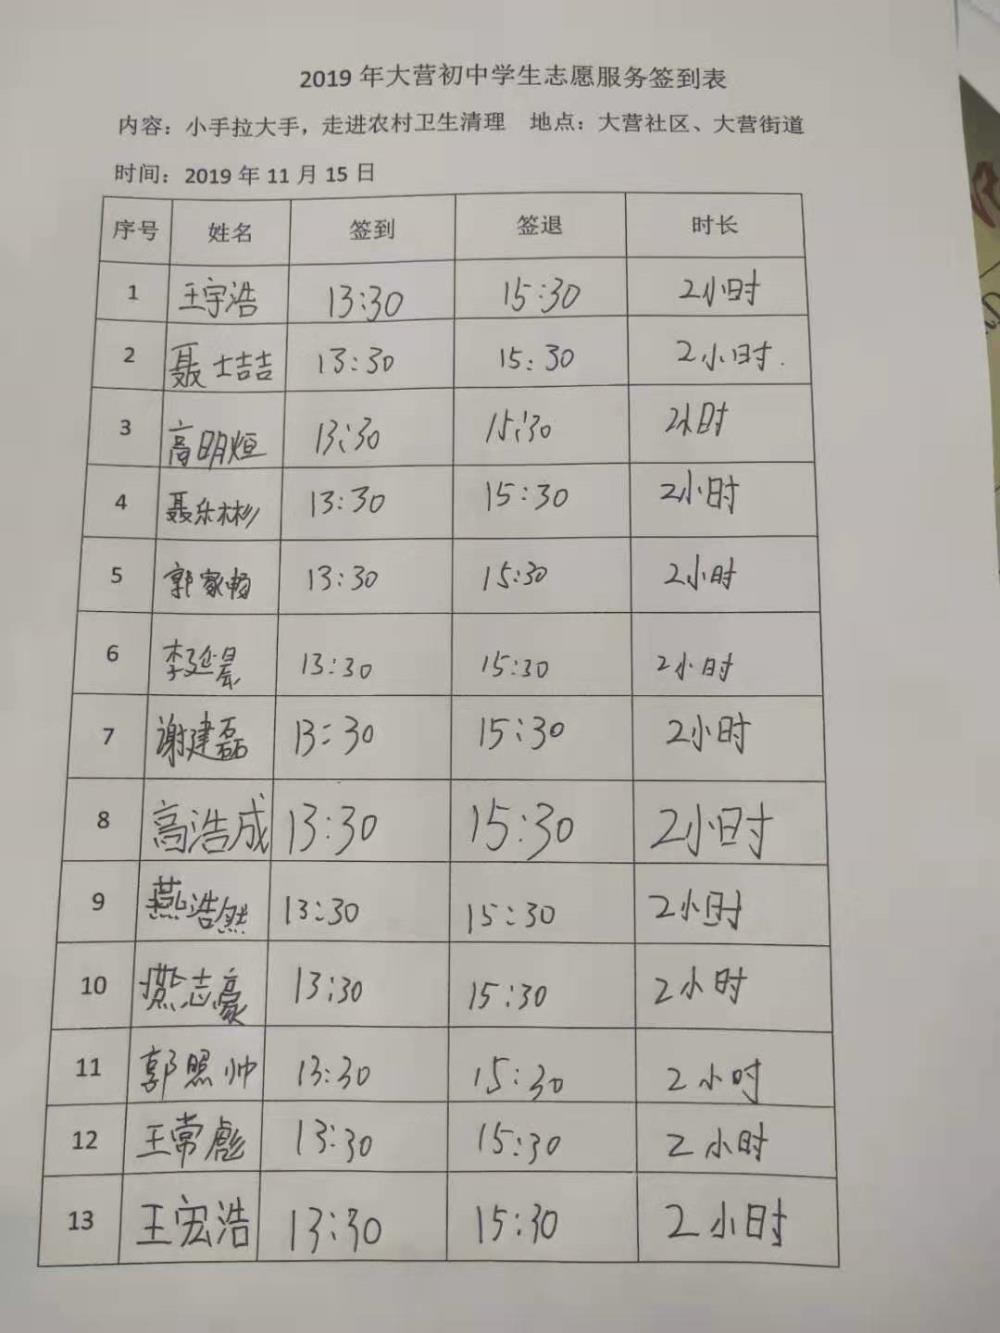 2019年大营初中学生志愿服务签到表
内容：小手拉大手，走进农村卫生清理 地点：大营社区、大营街道
时间：2019年11月15日
序号 姓名 签到 签退 时长
1 王宇浩 13:30 15:30 2小时
2 聂士喆 13:30 15:30 2小时.
3 高明烜 13:30 15:30 2小时
4 聂乐彬 13:30 15:30 2小时
5 郭家畅 13:30 15:30 2小时
6 李延晨 13:30 15:30 2小时
7 谢建磊 13:30 15:30 2小时
8 高浩成 13:30 15:30 2小时
9 燕浩然 13:30 15:30 2小时
10 燕志豪 13:30 15:30 2小时
11 郭照帅 13:30 15:30 2小时
12 王常彪 13:30 15:30 2小时
13 王宏浩 13:30 15:30 2小时